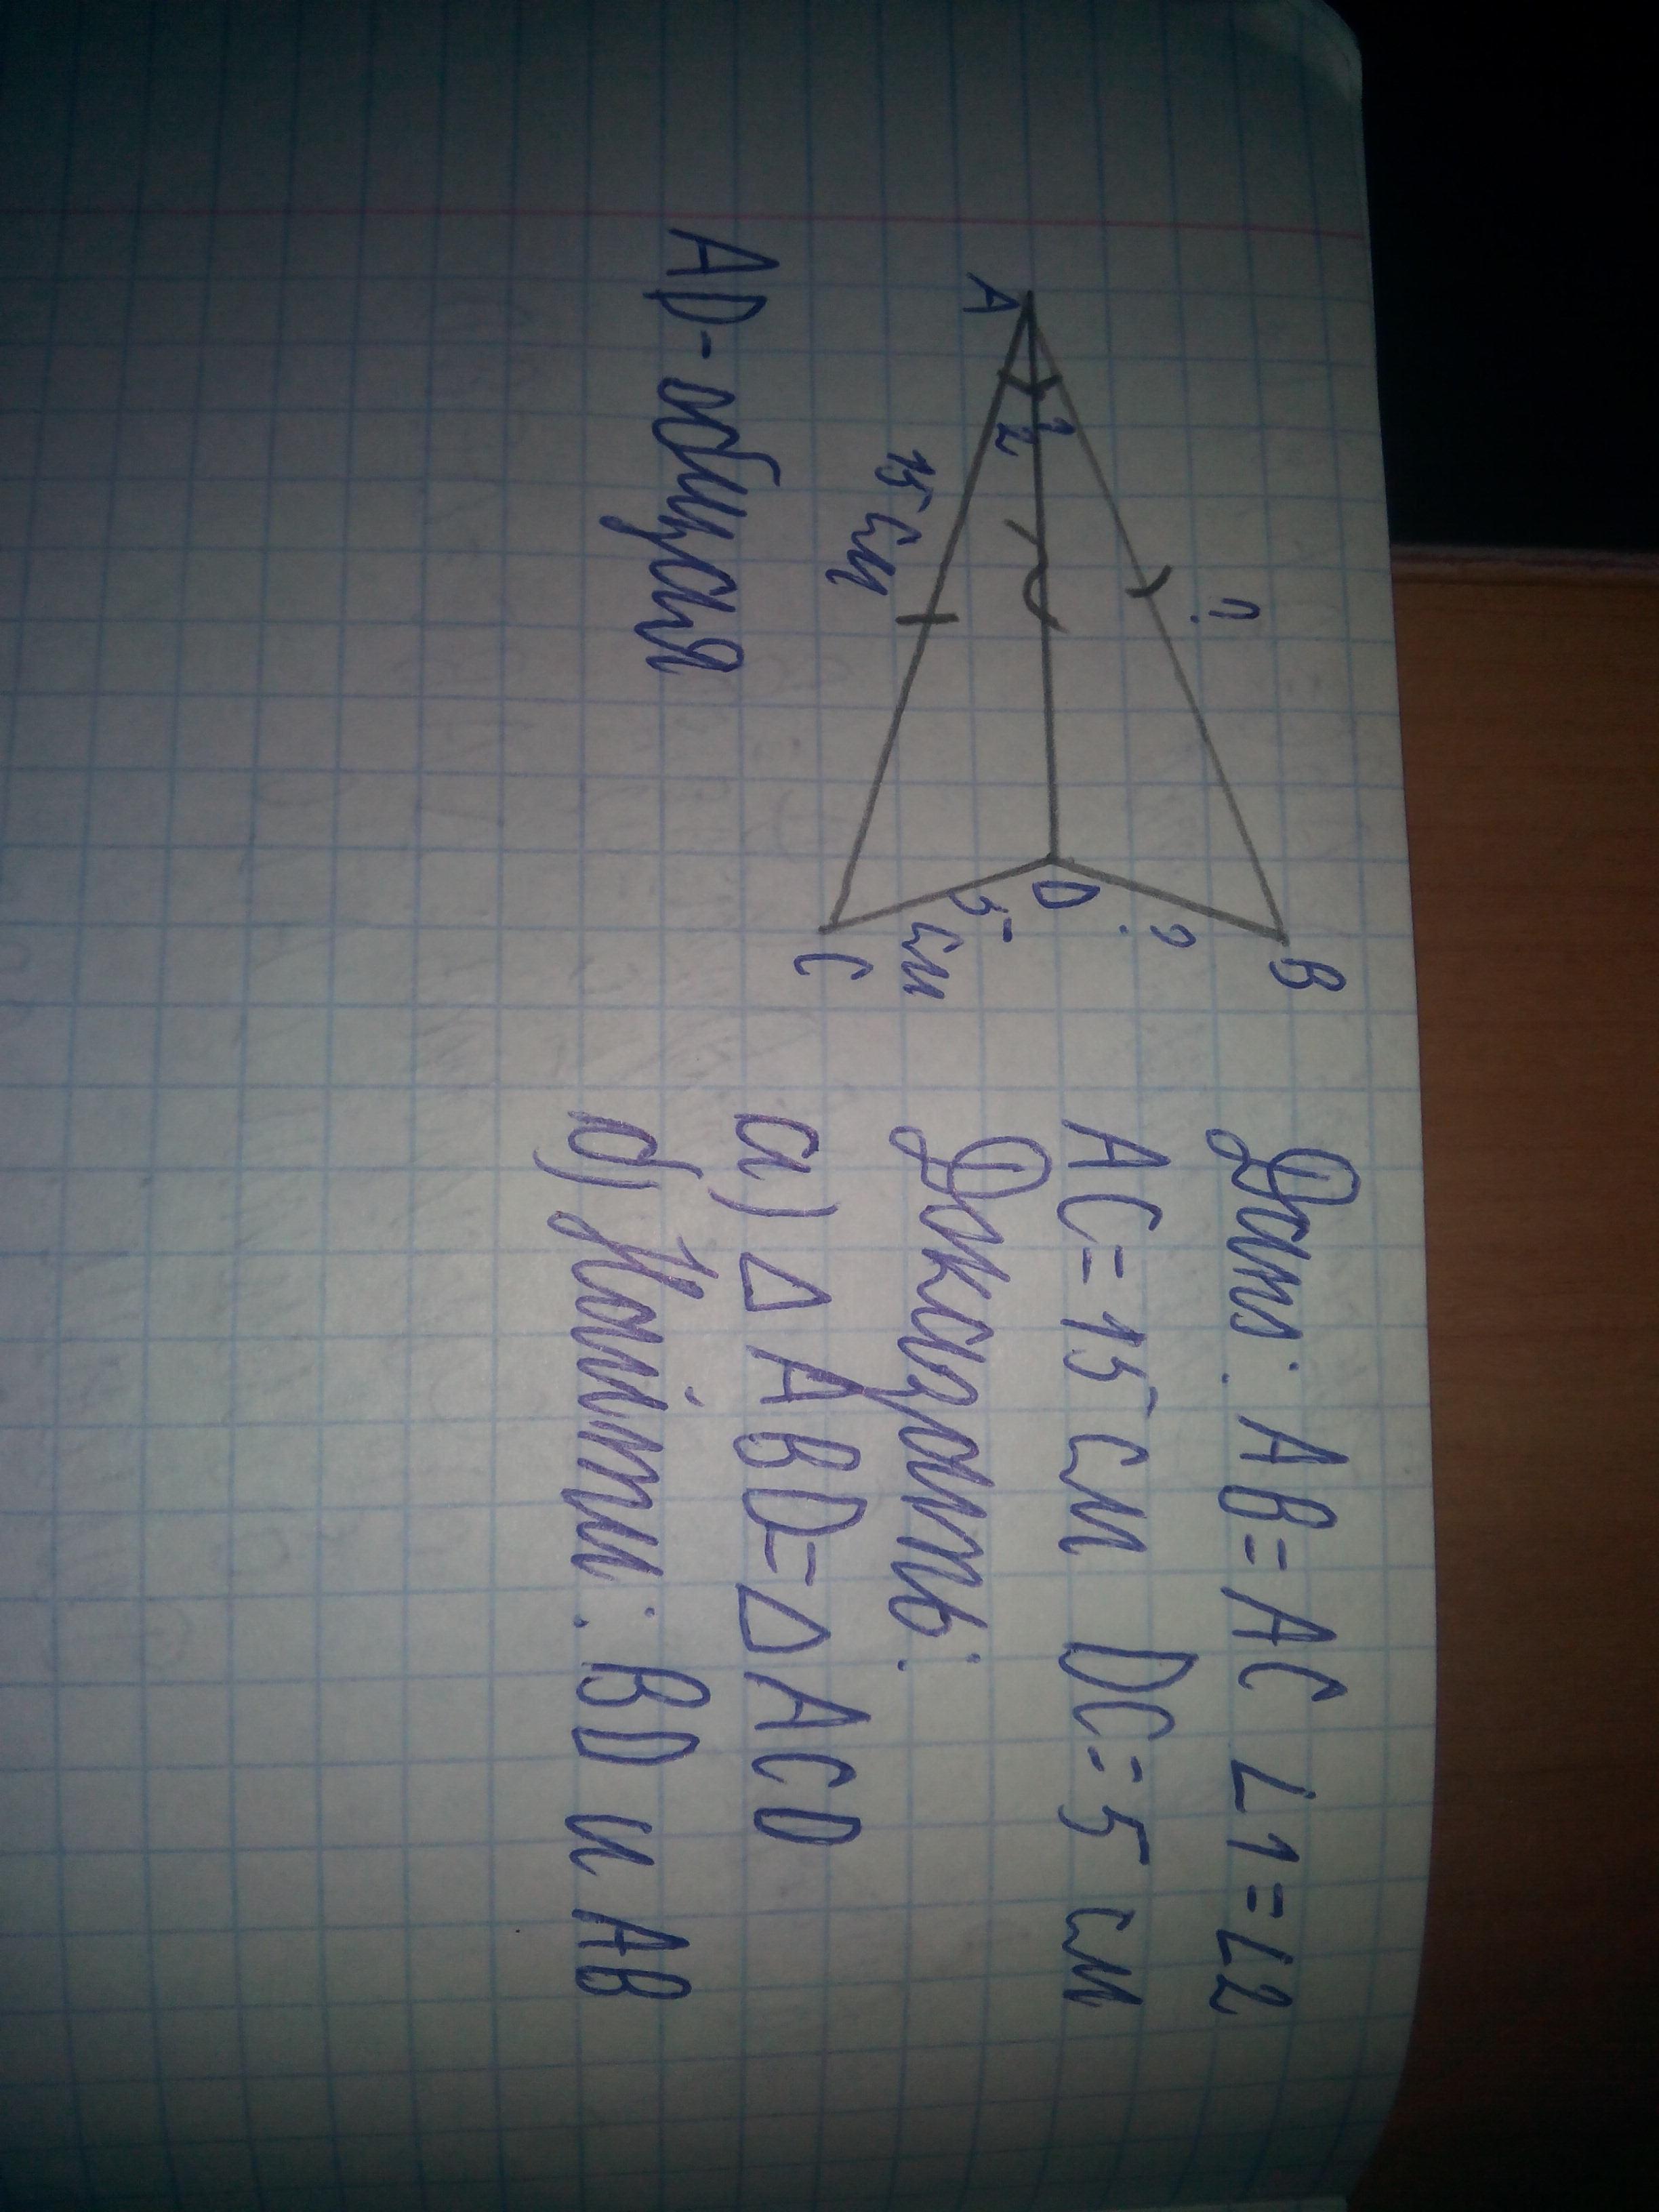 B
?
?
A
1
2
D
15 см
5 см
C
AD-общая
Дано: AB=AC ∠1=∠2
AC=15 см DC=5 см
Доказать:
а) △ABD=△ACD
б) Найти: BD и AB